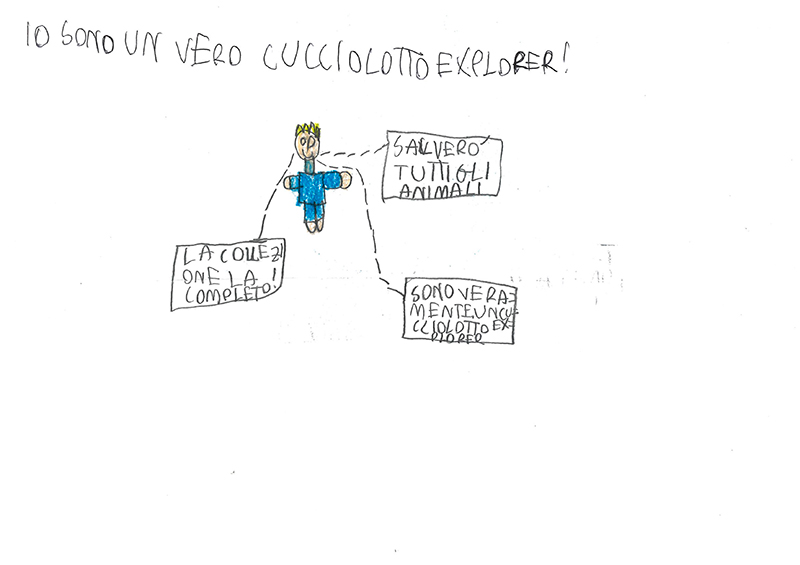 IO SONO UN VERO CUCCIOLOTTO EXPLORER!
SALVERÒ
TUTTI GLI
ANIMALI
LA COLLEZI
ONE LA
COMPLETO!
SONO VERA-
MENTE UN CU-
CCIOLOTTO EX-
PLORER